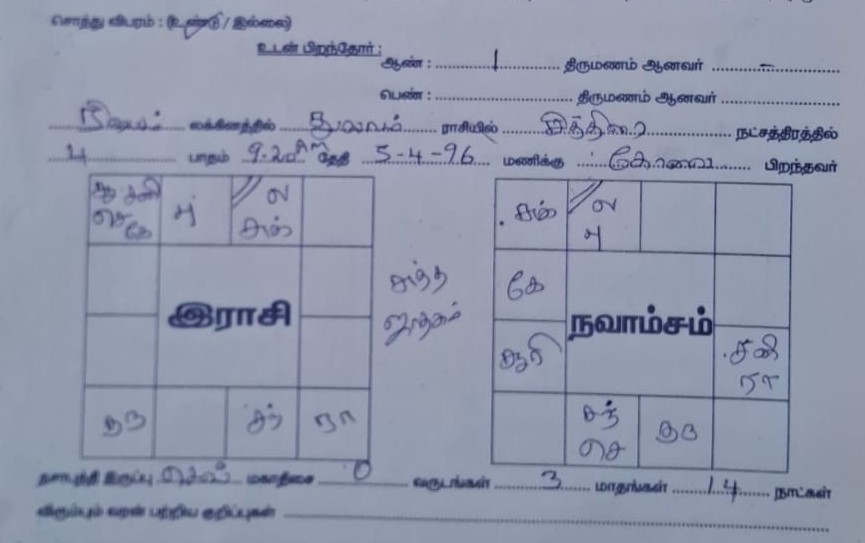 சொத்து விபரம் : (உண்டு / இல்லை)
உடன் பிறந்தோர் :
ஆண் : 1 திருமணம் ஆனவர் –
பெண் : திருமணம் ஆனவர்
ரிஷபம் லக்கினத்தில் துலாம் ராசியில் சித்திரை நட்சத்திரத்தில்
4 பாதம் 9-20 தேதி 5-4-96 மணிக்கு கோவை பிறந்தவர்
சூ சனி செ கே பு ல சுக் சுக் ல பு
சுத்த ஜாதகம் கே
இராசி நவாம்சம்
சூரி சனி ரா
குரு சந் ரா சந் செ குரு
தசாபுத்தி இருப்பு செவ் மகாதிசை 0 வருடங்கள் 3 மாதங்கள் 14 நாட்கள்
விரும்பும் வரன் பற்றிய குறிப்புகள்